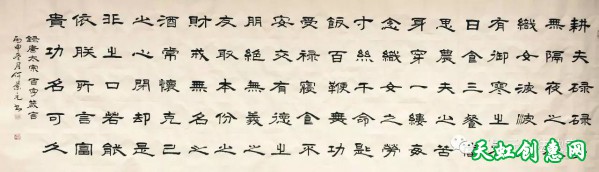 耕夫碌碌
無隔夜之
織女波波
有御寒之
日食三餐
思農夫之苦
身穿一縷
念織女之勞
寸絲千命匙
飯百鞭無功
受祿寢食不
安交有德之
朋絕無義之
友取本分之
財戒無名之
酒常懷克己
之心閉却是
非之口若能
依朕所言富
貴功名可久
錄唐太宗百字箴言
丙申冬月何
天虹创意网